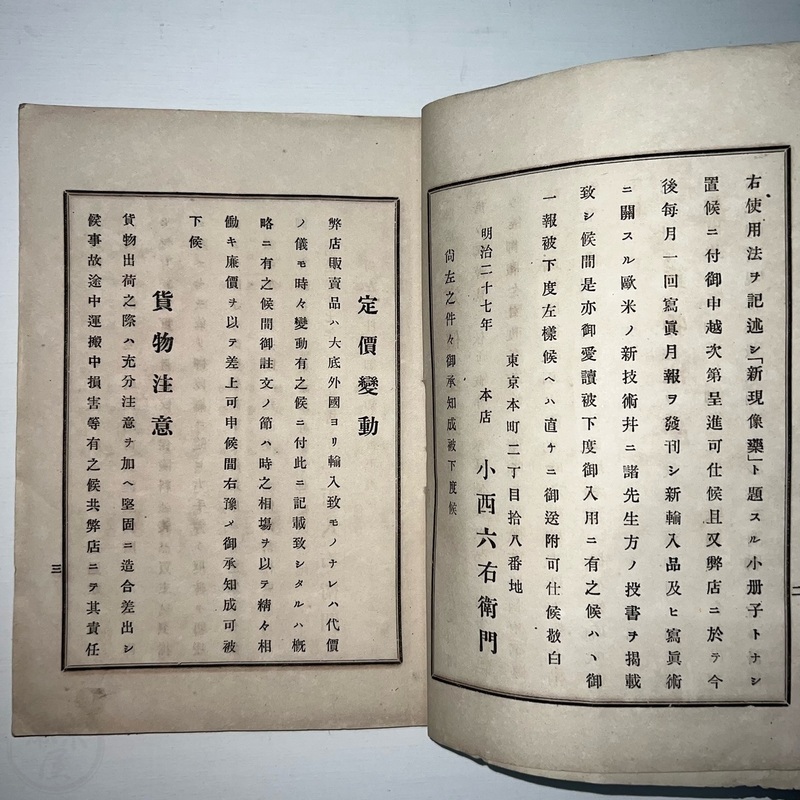 右使用法ヲ記述シ「新現像藥」ト題スル小册子トナシ
置候ニ付御申越次第呈進可仕候且又弊店ニ於テ今
後毎月一回寫眞月報ヲ發刊シ新輸入品及ヒ寫眞術
ニ關スル歐米ノ新技術幷ニ諸先生方ノ投書ヲ掲載
致シ候間是亦御愛讀被下度御入用ニ有之候ハヽ御
一報被下度左樣候ヘハ直チニ御送附可仕候敬白
明治二十七年
東京本町二丁目拾八番地
本店 小西六右衛門
尙左之件々御承知成被下度候
二
定價變動
弊店販賣品ハ大底外國ヨリ輸入致モノナレハ代價
ノ儀モ時々變動有之候ニ付此ニ記載致シタルハ概
略ニ有之候間御註文ノ節ハ時之相塲ヲ以テ精々相
働キ廉價ヲ以テ差上可申候間右豫メ御承知成可被
下候
貨物注意
貨物出荷之際ハ充分注意ヲ加ヘ堅固ニ造合差出シ
候事故途中運搬中損害等有之候共弊店ニテ其責任
三